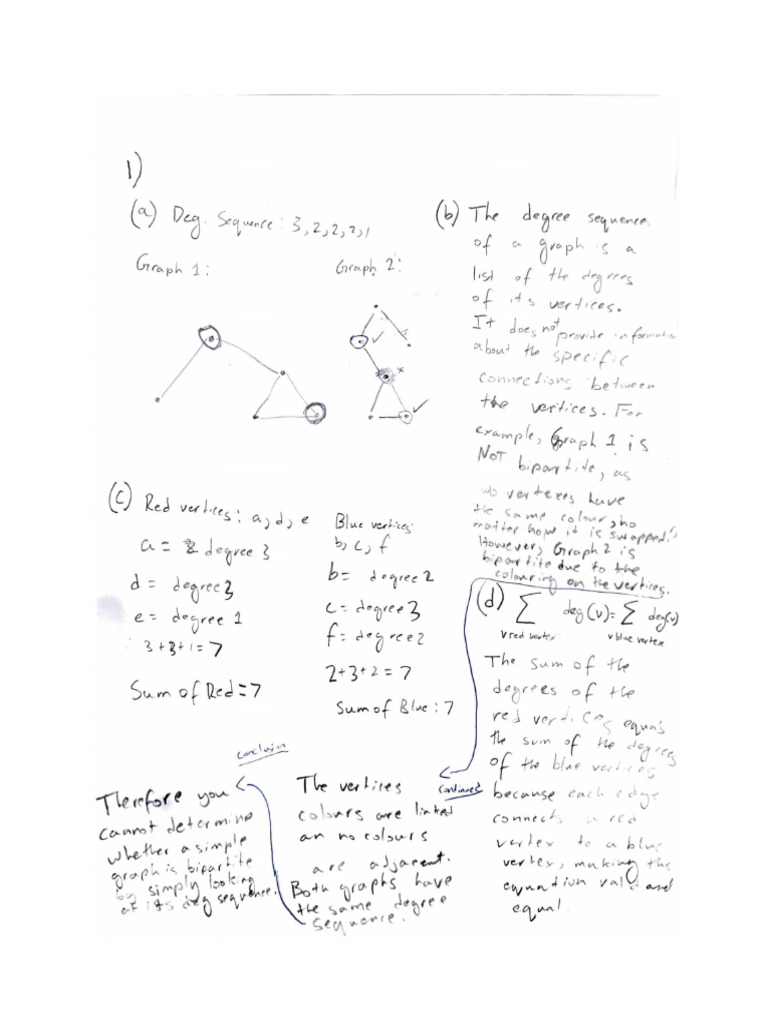 1)
(a) Deg. Sequence: 3,2,2,2,1
Graph 1:
Graph 2:
(b) The degree sequence
of a graph is a
list of the degrees
of its vertices.
It does not provide information
about the specific
connections between
the vertices. For
example, Graph 1 is
NOT bipartite, as
vertexes have
the same colour, no
matter how it is swapped.
However, Graph 2 is
bipartite due to the
colouring on the vertices.
(c) Red vertices: a, d, e
a = degree 3
d = degree 3
e = degree 1
3+3+1=7
Sum of Red=7
Blue vertices:
b, c, f
b = degree 2
c = degree 3
f = degree 2
2+3+2 = 7
Sum of Blue: 7
(d) Σ deg(v) = Σ deg(v)
v red vertex v blue vertex
The sum of the
degrees of the
red vertices equals
the sum of the degrees
of the blue vertices
because each edge
connects a red
vertex to a blue
vertex, making the
equation valid and
equal.
continued
The vertices
colours are linked
an no colours
are adjacent.
Both graphs have
the same degree
sequence.
conclusion
Therefore you
cannot determine
whether a simple
graph is bipartite
by simply looking
at its deg sequence.